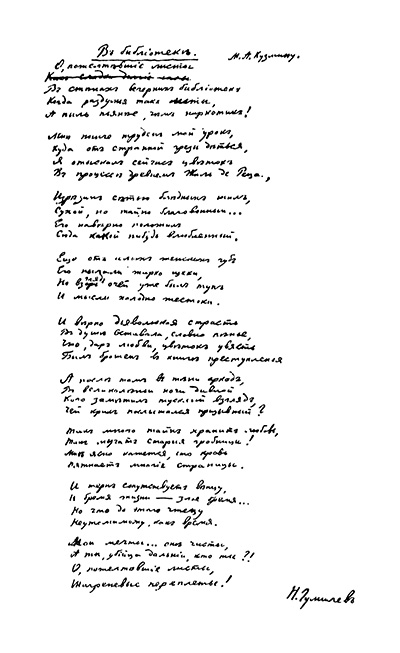 Въ библіотекѣ.
М. А. Кузмину.
О, пожелтѣвшіе листы
Въ стѣнахъ вечернихъ библіотекъ
Когда раздумья такъ чисты,
А пыль пьянѣе, чѣмъ наркотикъ!
Мнѣ нынче труденъ мой урокъ,
Куда отъ странной грезы дѣться,
Я отыскалъ сейчасъ цвѣтокъ
Въ процессѣ древнемъ Жиль де Реца.,
Изрѣзанъ сѣтью блѣдныхъ жилъ,
Сухой, но тайно благовонный...
Его навѣрно положилъ
Сюда какой нибудь влюбленный.
Еще отъ алыхъ женскихъ губъ
Его пылали жарко щеки,
Но взглядъ очей уже былъ тупъ
И мысли холодно жестоки.
И вѣрно дьявольская страсть
Въ душѣ вставала, словно пѣнье,
Что даръ любви, цвѣтокъ увясть
Былъ брошенъ въ книгѣ преступленья
А послѣ тамъ въ тѣни аркадъ,
Въ великолѣпьи ночи дивной
Кого замѣтилъ тусклый взглядъ,
Чей крикъ послышался призывный?
Такъ много тайнъ хранитъ любовь,
Такъ мучатъ старыя гробницы!
Мнѣ ясно кажется, что кровь
Пятнаетъ многія страницы.
И тернъ сопутствуетъ вѣнцу,
И бремя жизни — злое бремя...
Но что до этого чтецу
Неутомимому, какъ время.
Мои мечты... онѣ чисты,
А ты, убійца дальній, кто ты?!
О, пожелтѣвшіе листы,
Шагреневые переплеты!
Н. Гумилевъ